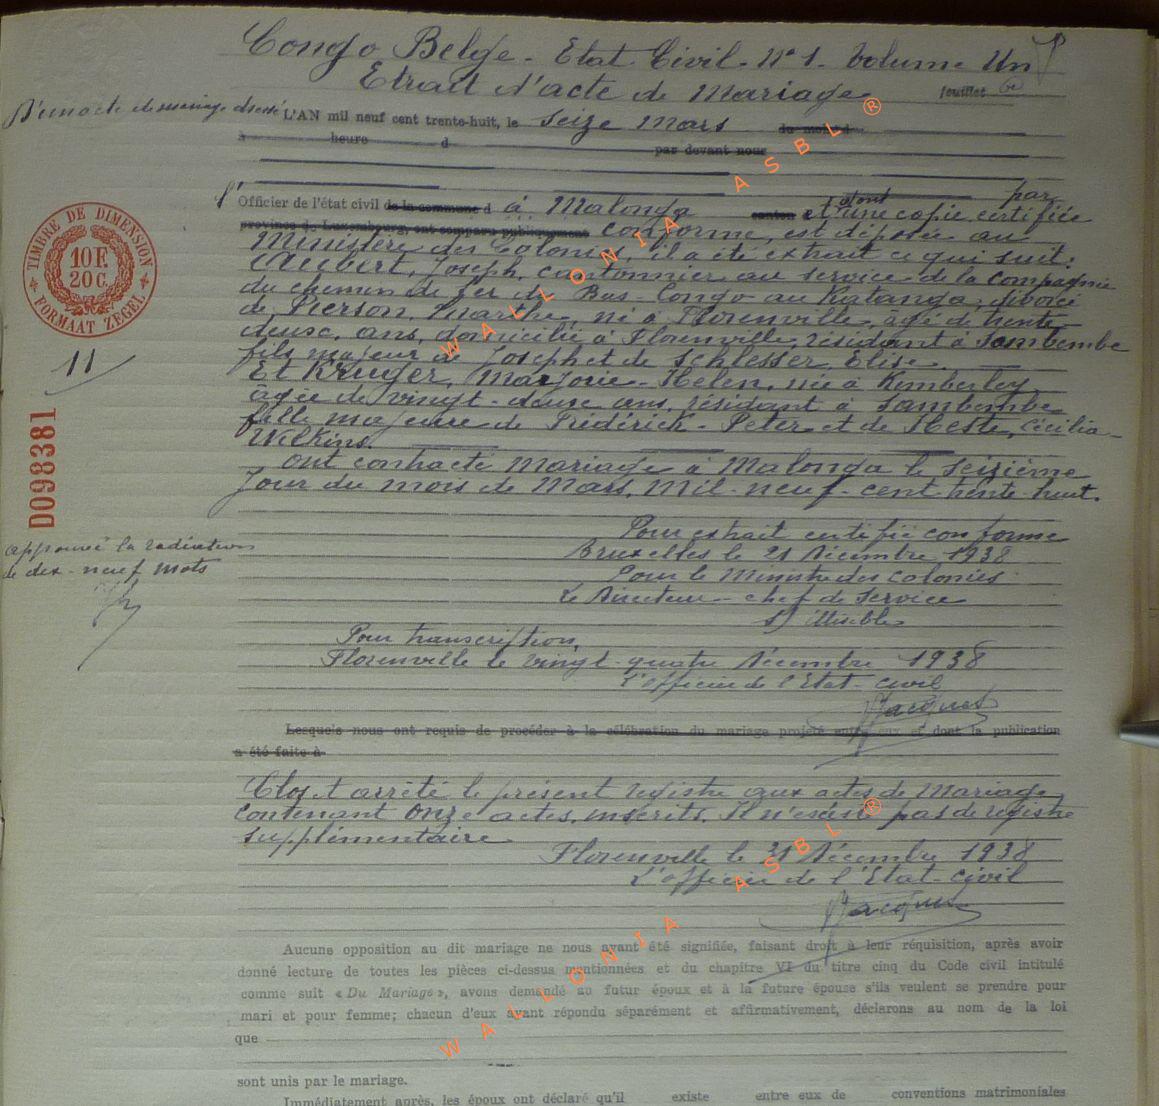 Congo Belge - Etat Civil - N° 1. Volume Un
Etrait d'acte de Mariage
feuillet
D'un acte de mariage dressé
L'AN mil neuf cent trente-huit, le seize Mars du mois d
à heure d par devant nous
par
Officier de l'état civil de la commune d à Malonga canton et dont une copie certifiée
province de Luxembourg, ont comparu publiquement conforme, est déposée au
Ministère des Colonies, il a été extrait ce qui suit:
Aubert, Joseph, cantonnier au service de la Compagnie
du chemin de fer du Bas-Congo au Katanga, divorcé
de Pierson, Marthe, né à Florenville, âgé de trente-
deux ans, domicilié à Florenville, résidant à Sambembe
fils majeur de Joseph et de Schlesser, Elise.
Et Kruger, Marjorie-Helen, née à Kimberley
âgée de vingt-deux ans, résidant à Sambembe
fille majeure de Frédérick-Peter et de Heste, Cécilia-
Wilkins.
ont contracté mariage à Malonga le seizième
jour du mois de Mars, mil neuf-cent trente-huit.
TIMBRE DE DIMENSION
10 F
20 C.
FORMAAT ZEGEL
11
D098381
approuvé la radiation
de dix-neuf mots
Pour extrait certifié conforme
Bruxelles le 21 Décembre 1938
Pour le Ministre des colonies
Le Directeur-chef de Service
s) Illisible
Pour transcription,
Florenville le vingt-quatre Décembre 1938
L'officier de l'Etat-civil
Jacques
Lesquels nous ont requis de procéder à la célébration du mariage projeté entre eux et dont la publication
a été faite à
Clos et arrêté le présent registre aux actes de Mariage
contenant onze actes, inscrits. Il n'existe pas de registre
supplémentaire
Florenville le 31 Décembre 1938
L'officier de l'Etat-civil
Jacques
Aucune opposition au dit mariage ne nous ayant été signifiée, faisant droit à leur réquisition, après avoir
donné lecture de toutes les pièces ci-dessus mentionnées et du chapitre VI du titre cinq du Code civil intitulé
comme suit « Du Mariage », avons demandé au futur époux et à la future épouse s'ils veulent se prendre pour
mari et pour femme; chacun d'eux ayant répondu séparément et affirmativement, déclarons au nom de la loi
que
sont unis par le mariage.
Immédiatement après, les époux ont déclaré qu'il existe entre eux de conventions matrimoniales
WALLONIA ASBL ®
WALLONIA ASBL ®